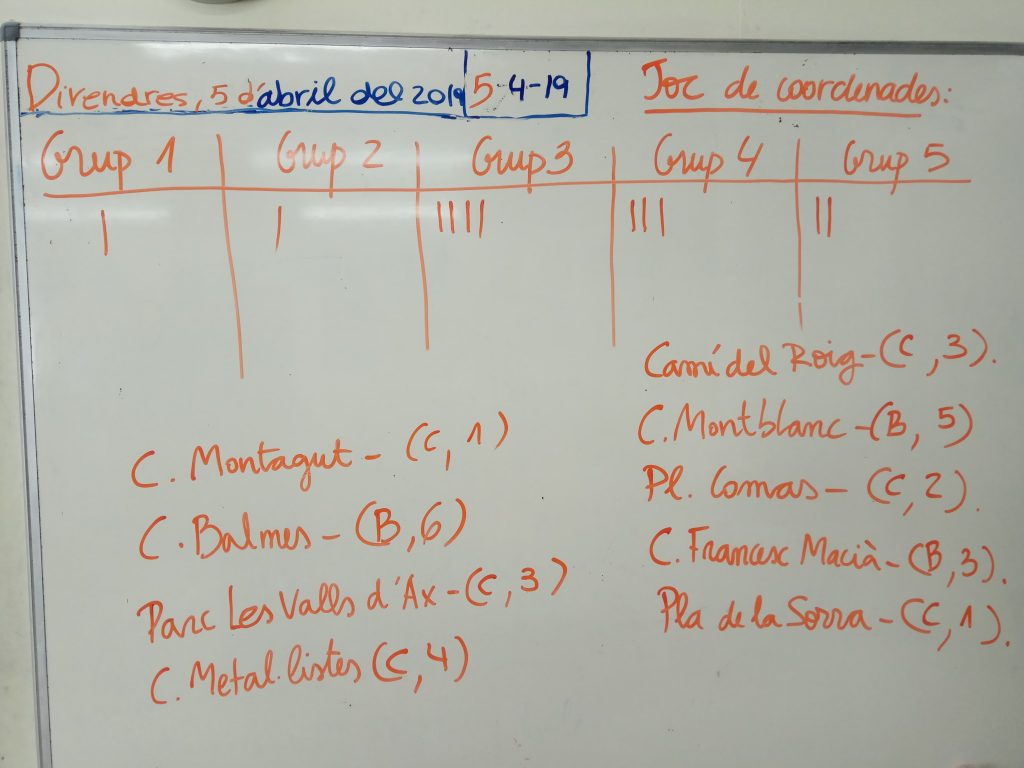 Divendres, 5 d'abril del 2019 5-4-19
Joc de coordenades:
Grup 1 Grup 2 Grup 3 Grup 4 Grup 5
| | |||| ||| ||
C. Montagut - (C, 1)
C. Balmes - (B, 6)
Parc Les Valls d'Ax - (C, 3)
C. Metal·listes (C, 4)
Camí del Roig - (C, 3).
C. Montblanc - (B, 5)
Pl. Comas - (C, 2).
C. Francesc Macià - (B, 3).
Pla de la Sorra - (C, 1).